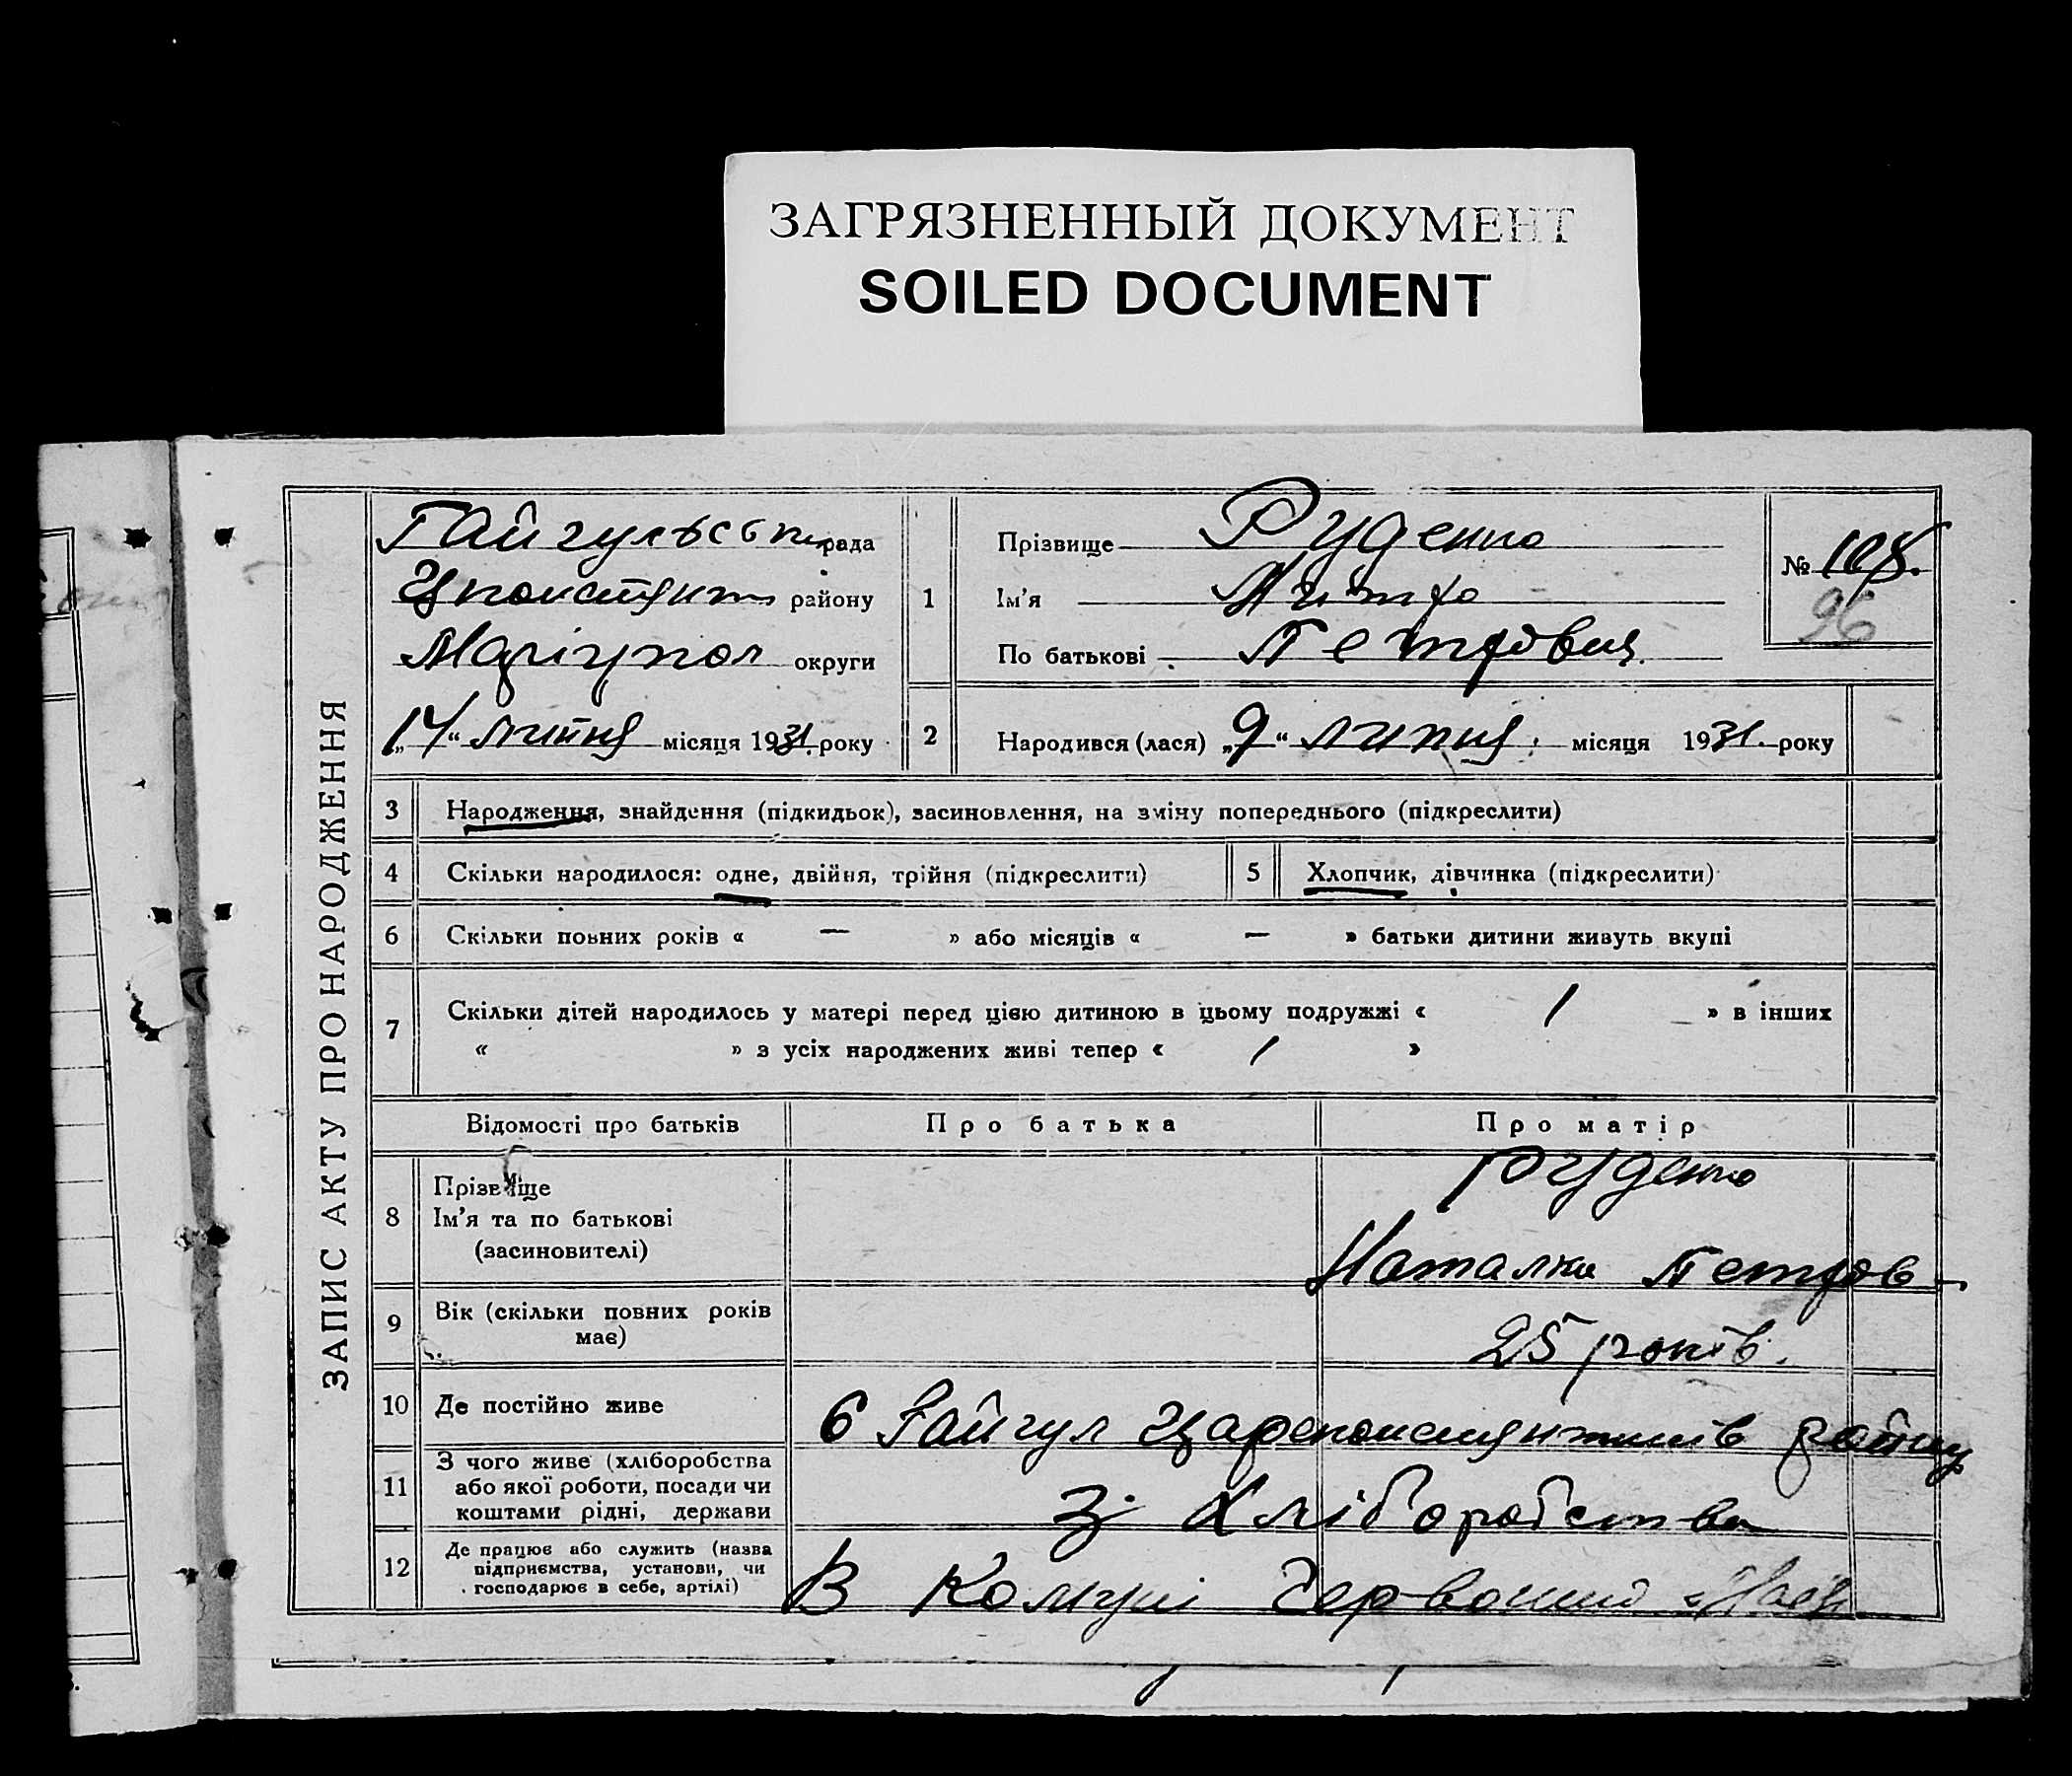 ЗАГРЯЗНЕННЫЙ ДОКУМЕНТ
SOILED DOCUMENT
ЗАПИС АКТУ ПРО НАРОДЖЕННЯ
рада
району
Маріупол округи
„14“ липня місяця 1931. року
1
Прізвище Руденко
Ім'я Митро
По батькові Петрович
№ 108.
96
2
Народився (лася) „9“ липня. місяця 1931. року
3 Народження, знайдення (підкидьок), засиновлення, на зміну попереднього (підкреслити)
4 Скільки народилося: одне, двійня, трійня (підкреслити)
5 Хлопчик, дівчинка (підкреслити)
6 Скільки повних років « — » або місяців « — » батьки дитини живуть вкупі
7 Скільки дітей народилось у матері перед цією дитиною в цьому подружжі « 1 » в інших
« » з усіх народжених живі тепер « 1 »
Відомості про батьків Про батька Про матір
8 Прізвище
Ім'я та по батькові
(засиновителі)
Руденко
Наталка Петров-
9 Вік (скільки повних років
має)
25 років.
10 Де постійно живе
Гайчул району
11 З чого живе (хліборобства
або якої роботи, посади чи
коштами рідні, держави
З Хліборобства
12 Де працює або служить (назва
підприємства, установи, чи
господарює в себе, артілі)
В Комуні Червоний